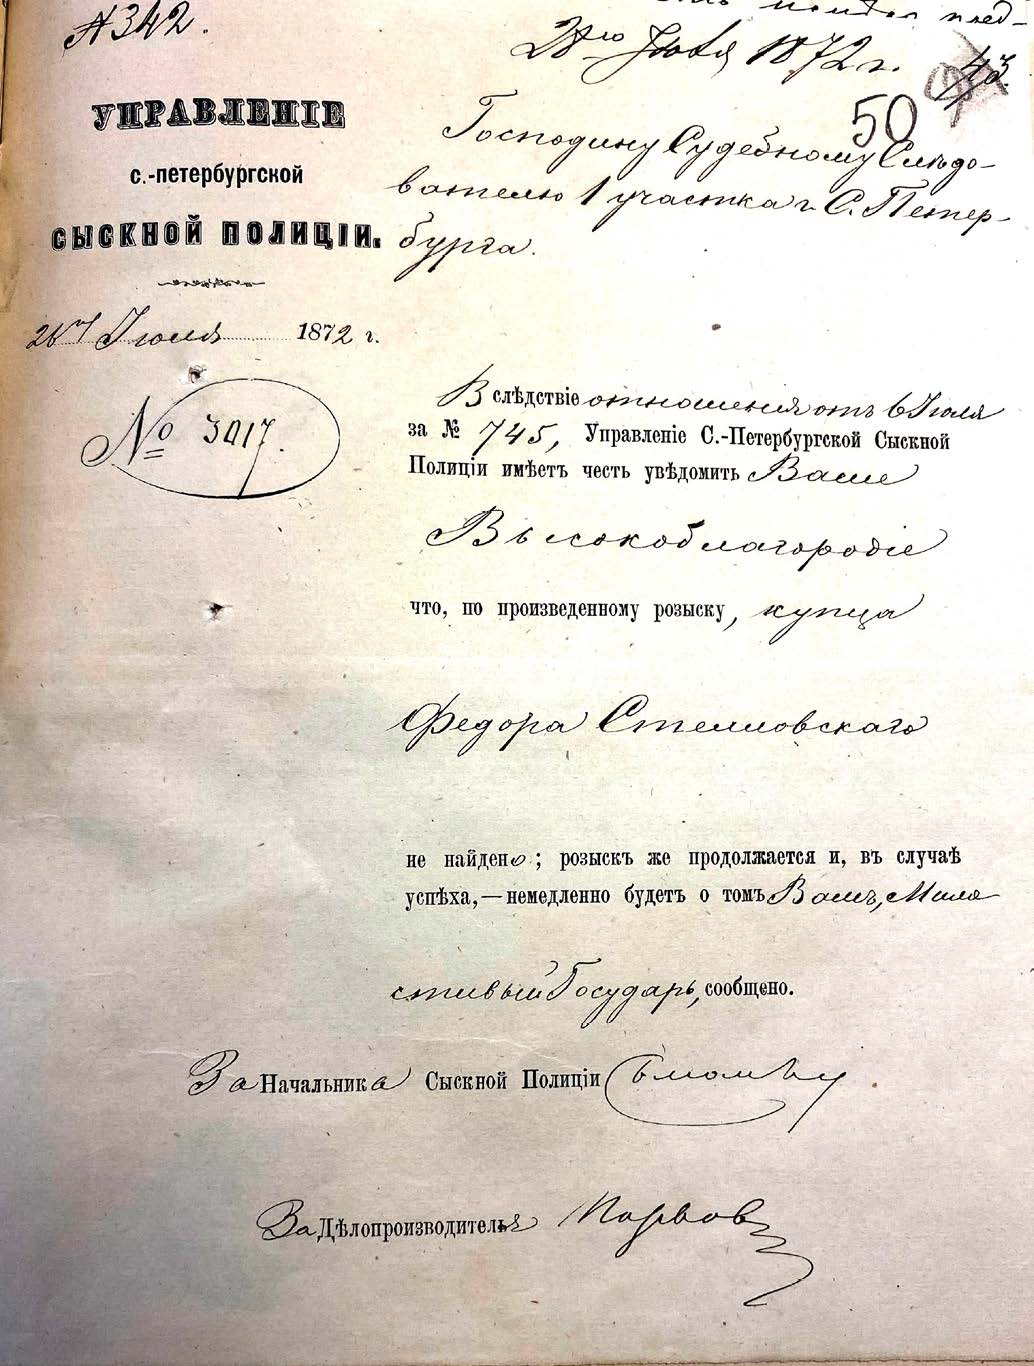 № 342.
28го Июля 1872 г.
43.
50
УПРАВЛЕНІЕ
С.-ПЕТЕРБУРГСКОЙ
СЫСКНОЙ ПОЛИЦІИ.
Господину Судебному Слѣдо-
вателю 1 участка г. С. Петер-
бурга.
Июля 1872 г.
№ 3017.
Вслѣдствіе отношенія отъ 6 Июля
за № 745, Управленіе С.-Петербургской Сыскной
Полиціи имѣетъ честь увѣдомить Ваше
Высокоблагородіе
что, по произведенному розыску, купца
Федора Стелловскаго
не найдено; розыскъ же продолжается и, въ случаѣ
успѣха,—немедленно будетъ о томъ Вамъ, Мило
стивый Государь, сообщено.
За Начальника Сыскной Полиціи
За Дѣлопроизводителя